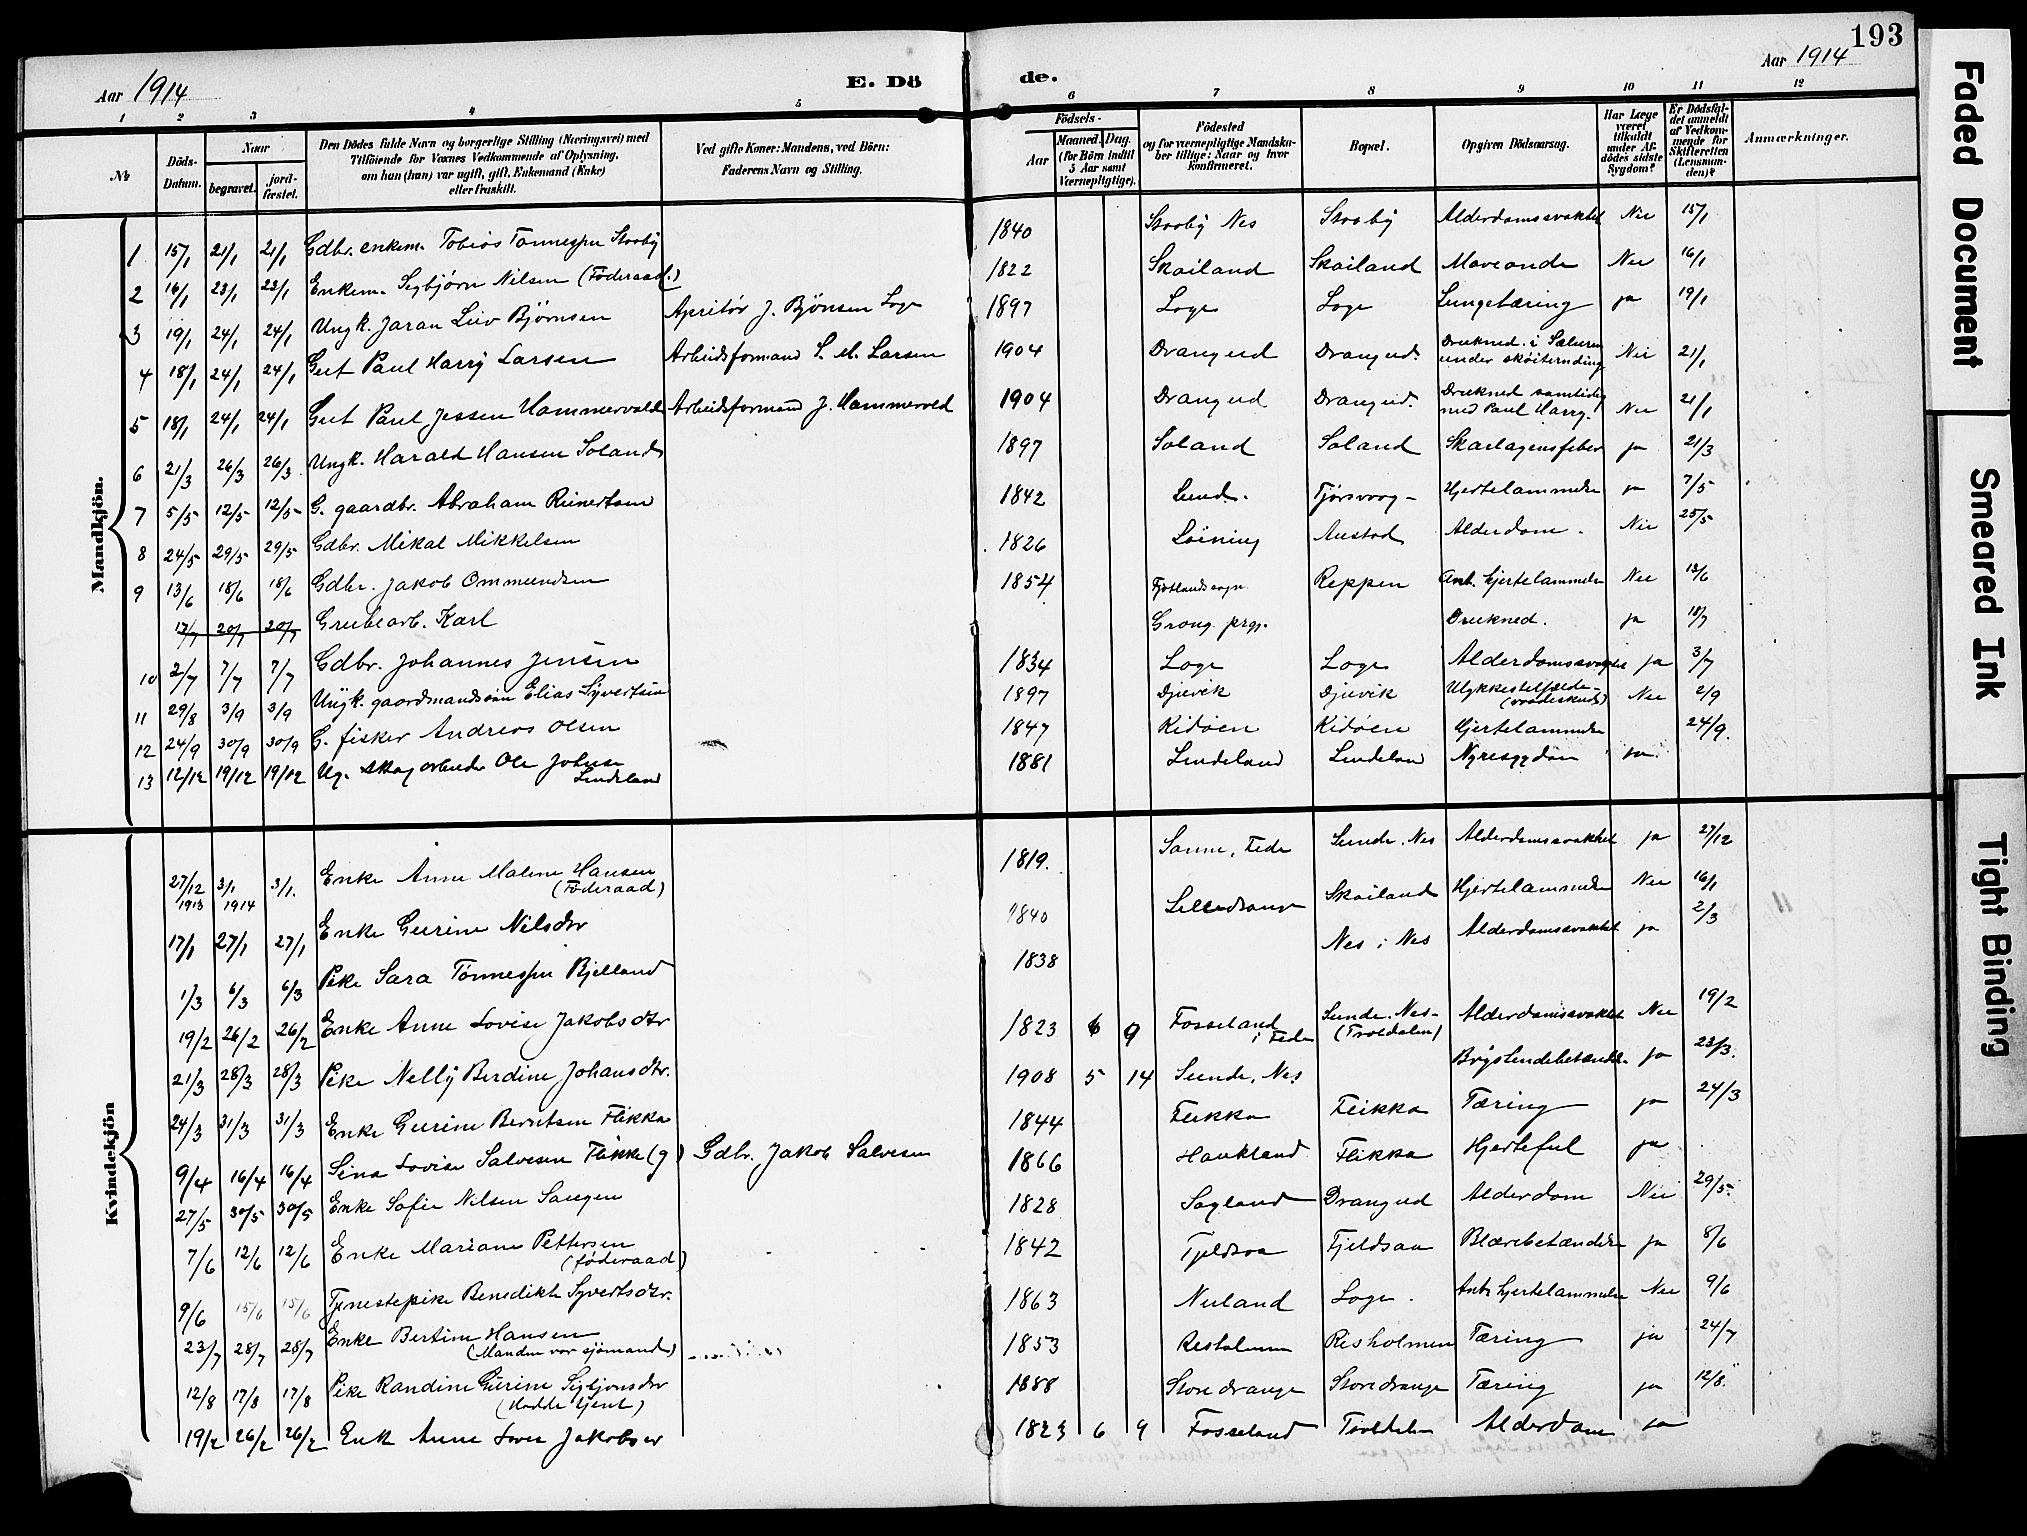 193
Aar 1914
E. Dö de.
Aar 1914
1 2 3 4 5 6 7 8 9 10 11 12
No
Döds-Datum.
Naar
begravet.
jord-fæstet.
Den Dödes fulde Navn og borgerlige Stilling (Næringsvei) med
Tilföiende for Voxnes Vedkommende af Oplysning,
om han (hun) var ugift, gift, Enkemand (Enke)
eller fraskilt.
Ved gifte Koner: Mandens, ved Börn:
Faderens Navn og Stilling.
Födsels-
Aar
Maaned. Dag.
(for Börn indtil
5 Aar samt
Værnepligtige).
Födested
og for værnepligtige Mandska-
ber tillige: Naar og hvor
konfirmeret.
Bopæl.
Opgiven Dödsaarsag.
Har Læge
været
tilkaldt
under Af-
dödes sidste
Sygdom?
Er Dödsfal-
det anmeldt
af Vedkom-
mende for
Skifteretten
(Lensman-
den)?
Anmærkninger.
Mandkjön.
1 15/1 21/1 21/1 Gdbr. enkem. Tobias Tønnessen Stooby 1840 Stooby Nes Stooby Alderdomssvakhet Nei 15/1
2 16/1 23/1 23/1 Enkem. Sigbjørn Nilsen (Føderaad.) 1822 Skailand Skailand Maveonde Nei 16/1
3 19/1 24/1 24/1 Ungk. Jaran Liiv Bjørnsen Apritør J. Bjønsen Loge 1897 Loge Loge Lungetæring ja 19/1
4 18/1 24/1 24/1 Gut Paul Harry Larsen Arbeidsformand L. M. Larsen 1904 Drangeid Drangeid. Drukned i Sæluren under skøiterending Nei 21/1
5 18/1 24/1 24/1 Gut Paul Jessen Hammervold Arbeidsformand J. Hammervold 1904 Drangeid Drangeid. Drukned samtidig med Paul Harry. Nei 21/1
6 21/3 26/3 26/3 Ungk. Harald Hansen Soland 1897 Soland Soland Skarlagensfeber ja 21/3
7 5/5 12/5 12/5 G. gaardbr. Abraham Reinertsen 1842 Lund. Tjørsvaag Hjertelammelse ja 7/5
8 24/5 29/5 29/5 Gdbr. Mikal Mikkelsen 1826 Løining Austad Alderdom. Nei 25/5
9 13/6 18/6 18/6 Gdbr. Jakob Ommundsen 1854 Fjotlandssogn Reppen Ant. hjertelammelse Nei 13/6
17/7 20/7 20/7 Grubearb. Karl Grong prgj. Drukned. ja 18/7
10 2/7 7/7 7/7 Gdbr. Johannes Jensen 1834 Loge Loge Alderdomssvakhet ja 3/7
11 29/8 3/9 3/9 Ungk. gaardmandssøn Elias Syvertsen 1897 Djuvik Djuvik Ulykkestilfælde (vaadeskud) Nei 2/9
12 24/9 30/9 30/9 G. fisker Andreas Olsen 1847 Kidøen Kidøen Hjertelammelse 24/9.
13 12/12 19/12 19/12 Ug. skogarbeider Ole Johnsen Lindeland 1881 Lindeland Lindeland Nyresygdom ja
Kvindekjön
27/12 1913 3/1 1914 3/1. Enke Anne Malene Hansen (Føderaad) 1819. Sanne, Feda Sunde, Nes Alderdomssvakhet ja 27/12
17/1 27/1 27/1 Enke Gurine Nilsdtr 1840 Lilledrange Skailand Hjertelammelse Nei 16/1
1/3 6/3 6/3 Pike Sara Tønnessen Bjelland 1838 Nes i Nes Alderdomssvakhet ja 2/3
19/2 26/2 26/2 Enke Anne Lovise Jakobsdtr 1823 6 9 Fosseland i Feda Sunde. Nes (Troldalen) Alderdomssvakhet Nei 19/2
21/3 28/3 28/3 Pike Nelly Berdine Johansdtr. 1908 5 14 Sunde, Nes Brystendebetændelse ja 23/3.
24/3 31/3 31/3 Enke Gurine Berntsen Flikka 1844 Flikka Flikka Tæring ja 24/3
9/4 16/4 16/4 Lina Lovise Salvesen Flikke (g) Gdbr. Jakob Salvesen 1866 Haukland Flikka Hjertefeil ja
27/5 30/5 30/5 Enke Sofie Nilsen Saugen 1828 Sagland Drangeid Alderdom Nei 29/5.
7/6 12/6 12/6 Enke Mariane Pettersen (føderaad) 1842 Fjeldsaa Fjeldsaa Blærebetændelse ja 8/6
9/6 15/6 15/6 Tjenestepike Benedikte Syvertsdtr. 1863 Neuland Loge. Ant. hjertelammelse Nei 9/6
23/7 28/7 28/7 Enke Bertine Hansen (Manden var sjømand) 1853 Risholmen Risholmen Tæring ja 24/7
12/8 17/8 17/8 Pike Randine Gurine Sigbjønsdtr 1888 Storedrange Storedrange Tæring ja 12/8.
19/2 26/2 26/2 Enk Anne Lovise Jakobsdtr 1823 6 9 Fosseland Troldalen Alderdom ja
Faded Document
Smeared Ink
Tight Binding